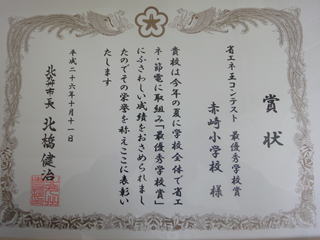 賞状
省エネ王コンテスト 最優秀学校賞
赤崎小学校 様
貴校は今年の夏に学校全体で省エ
ネ・節電に取組み「最優秀学校賞」
にふさわしい成績をおさめられまし
たのでその栄誉を称えここに表彰い
たします
平成二十六年十月十一日
北九州市長 北橋健治